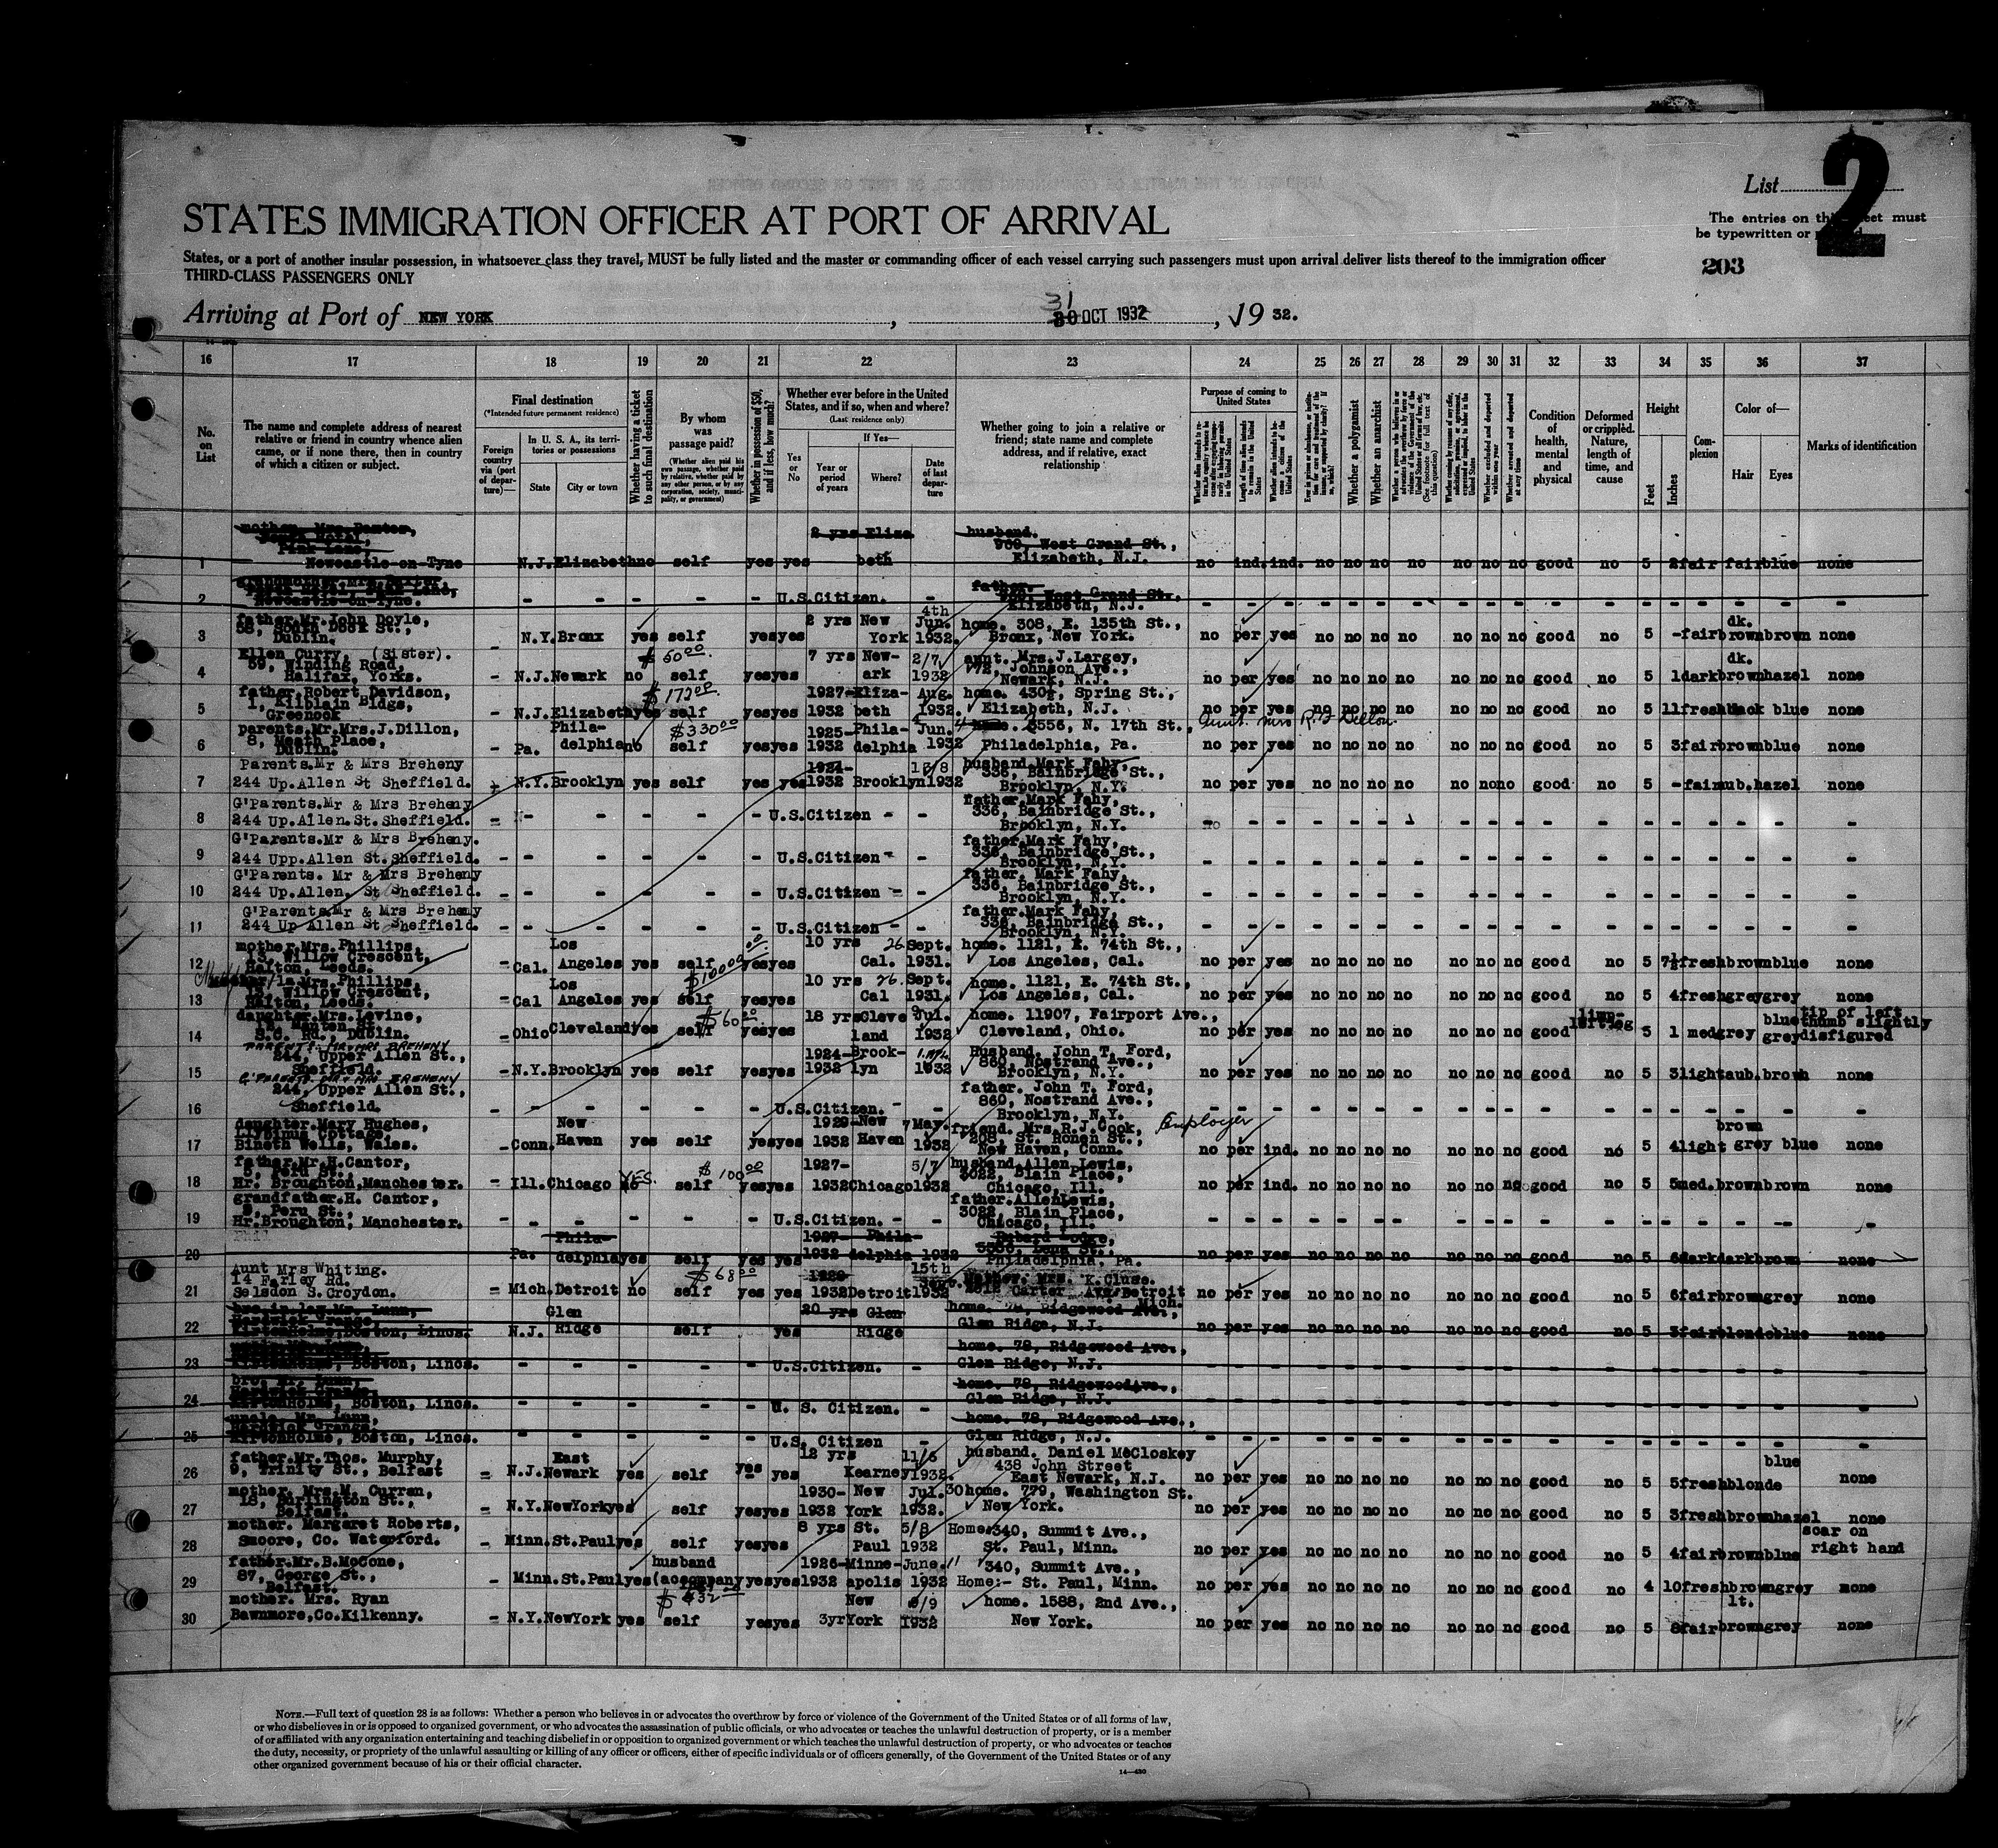 List 2
The entries on this sheet must
be typewritten or
203
STATES IMMIGRATION OFFICER AT PORT OF ARRIVAL
States, or a port of another insular possession, in whatsoever class they travel, MUST be fully listed and the master or commanding officer of each vessel carrying such passengers must upon arrival deliver lists thereof to the immigration officer
THIRD-CLASS PASSENGERS ONLY
Arriving at Port of NEW YORK, 31 30 OCT 1932, 19 32.
16 17 18 19 20 21 22 23 24 25 26 27 28 29 30 31 32 33 34 35 36 37
No. on List
The name and complete address of nearest relative or friend in country whence alien came, or if none there, then in country of which a citizen or subject.
Final destination
(*Intended future permanent residence)
Foreign country via (port of departure)—
In U. S. A., its territories or possessions
State
City or town
Whether having a ticket to such final destination
By whom was passage paid?
(Whether alien paid his own passage, whether paid by relative, whether paid by any other person, or by any corporation, society, municipality, or government)
Whether in possession of $50, and if less, how much?
Whether ever before in the United States, and if so, when and where?
(Last residence only)
Yes or No
If Yes—
Year or period of years
Where?
Date of last departure
Whether going to join a relative or friend; state name and complete address, and if relative, exact relationship
Purpose of coming to United States
Length of time alien intends to remain in the United States
Whether alien intends to become a citizen of the United States
Whether a polygamist
Whether an anarchist
(See footnote for full text of this question)
Whether excluded and deported within one year
Whether arrested and deported at any time
Condition of health, mental and physical
Deformed or crippled. Nature, length of time, and cause
Height
Feet
Inches
Complexion
Color of—
Hair
Eyes
Marks of identification
1 Newcastle-on-Tyne N.J. Elizabeth no self yes yes 2 yrs Eliza beth husband. West Grand St., Elizabeth, N.J. no ind. ind. no no no no no no no good no 5 2 fair fair blue none
2 Newcastle-on-Tyne. - - - - - U.S.Citizen. father. West Grand St., Elizabeth, N.J.
3 father Mr. John Doyle, 58, South Dock St., Dublin. N.Y. Bronx yes self yes yes 2 yrs New York 4th Jun. 1932. home. 308, E. 135th St., Bronx, New York. no per yes no no no no no no no good no 5 - fair dk. brown brown none
4 Ellen Curry, (Sister). 59, Winding Road, Halifax, Yorks. - N.J. Newark no $ 50 00 self yes yes 7 yrs Newark 2/7 1932 aunt. Mrs. J. Largey, 72, Johnson Ave., Newark, N.J. no per yes no no no no no no no good no 5 1 dark dk. brown hazel none
5 father. Robert Davidson, 1, Kilblain Bldgs, Greenock - N.J. Elizabeth yes $ 172 00 self yes yes 1927-1932 Elizabeth Aug. 1932. home. 430½, Spring St., Elizabeth, N.J. no per yes no no no no no no no good no 5 11 fresh black blue none
6 parents. Mr. Mrs. J. Dillon, 8, Meath Place, Dublin. - Pa. Philadelphia no $ 330 00 self yes yes 1925-1932 Philadelphia Jun. 1932 3556, N. 17th St., Philadelphia, Pa. Aunt Mrs R. J Dillon no per yes no no no no no no no good no 5 3 fair brown blue none
7 Parents. Mr & Mrs Breheny 244 Up. Allen St Sheffield. N.Y. Brooklyn yes self yes yes 1924-1932 Brooklyn 15/8 1932 husband Mark Fahy, 336, Bainbridge St., Brooklyn, N.Y. no per yes no no no no no no no good no 5 - fair aub. hazel none
8 G'Parents. Mr & Mrs Breheny 244 Up. Allen. St. Sheffield. - - - - - U.S.Citizen - - father. Mark Fahy, 336, Bainbridge St., Brooklyn, N.Y. no
9 G'Parents. Mr & Mrs Breheny. 244 Upp. Allen St. Sheffield. - - - - - U.S.Citizen - - father. Mark Fahy, 336, Bainbridge St., Brooklyn, N.Y.
10 G'Parents. Mr & Mrs Breheny 244 Up. Allen. St Sheffield. - - - - - U.S.Citizen - - father. Mark Fahy, 336, Bainbridge St., Brooklyn, N.Y.
11 G'Parents. Mr & Mrs Breheny 244 Up Allen St Sheffield. - - - - - U.S.Citizen - father. Mark Fahy, 336, Bainbridge St., Brooklyn, N.Y.
12 mother. Mrs. Phillips, 13, Willow Crescent, Halton, Leeds. - Cal. Los Angeles yes self yes yes 10 yrs Cal. 26 Sept. 1931. home. 1121, E. 74th St., Los Angeles, Cal. no per yes no no no no no no no good no 5 7½ fresh brown blue none
13 Mrs. Phillips, Willow Crescent, Halton, Leeds. - Cal Los Angeles yes $10000 00 self yes yes 10 yrs Cal 26. Sept. 1931. home. 1121, E. 74th St., Los Angeles, Cal. no per yes no no no no no no no good no 5 4 fresh grey grey none
14 daughter. Mrs. Levine, S.C. Rd., Dublin. - Ohio Cleveland yes $ 60 00 self yes yes 18 yrs Cleveland Jul. 1932 home. 11907, Fairport Ave., Cleveland, Ohio. no per yes no no no no no no no good left leg 5 1 med grey blue grey tip of left thumb slightly disfigured
15 PARENTS. MR & MRS BREHENY 244, Upper Allen St., Sheffield. - N.Y. Brooklyn yes self yes yes 1924-1932 Brooklyn 1932 Husband. John T. Ford, 860, Nostrand Ave., Brooklyn, N.Y. no per yes no no no no no no no good no 5 3 light aub. brown none
16 G'PARENTS. MR & MRS BREHENY 244, Upper Allen St., Sheffield. - - - - - U.S.Citizen. - father. John T. Ford, 860, Nostrand Ave., Brooklyn, N.Y.
17 daughter. Mary Hughes, Cottage, Wells, Wales. - Conn. New Haven yes self yes yes 1929-1932 New Haven 7 May. 1932 friend. Mrs. R.J. Cook, 208, St. Ronen St., New Haven, Conn. Employer no per ind. no no no no no no no good no 5 4 light brown grey blue none
18 father. Mr. H. Cantor, Peru St., Hr. Broughton, Manchester. - Ill. Chicago YES. no $ 100 00 self yes yes 1927-1932 Chicago 5/7 1932 husband. Allen Lewis, 3022, Blain Place, Chicago, Ill. no per ind. no no no no no no no good no 5 5 med. brown brown none
19 grandfather. H. Cantor, Peru St., Hr. Broughton, Manchester. - - - - - U.S.Citizen. - - father. Allen Lewis, 3022, Blain Place, Chicago, Ill.
20 Pa. Philadelphia yes self yes yes 1927-1932 Philadelphia 1932 Philadelphia, Pa. no per yes no no no no no no no good no 5 6 dark dark brown none
21 Aunt Mrs Whiting. 14 Farley Rd. Selsdon S. Croydon. - Mich. Detroit no $ 68 00 self yes yes 1929-1932 Detroit 15th Sept. 1932 Mother. Mrs. K. Cluse. Carter Ave. Detroit Mich. no per yes no no no no no no no good no 5 6 fair brown grey none
22 bro. in law. Mr. Lunn, Hardwick Grange, Kirtonholme, Boston, Lincs. N.J. Glen Ridge self yes 20 yrs Glen Ridge home. 78, Ridgewood Ave., Glen Ridge, N.J. no per yes no no no no no no no good no 5 3 fair blonde blue none
23 Kirtonholme, Boston, Lincs. - - - - - U.S.Citizen. - home. 78, Ridgewood Ave., Glen Ridge, N.J.
24 bro. Mr. Lunn, Hardwick Grange, Kirtonholme, Boston, Lincs. - - - - - U. S. Citizen. - home. 78, Ridgewood Ave., Glen Ridge, N.J.
25 uncle. Mr. Lunn, Hardwick Grange, Kirtonholme, Boston, Lincs. - - - - - U.S. Citizen - home. 78, Ridgewood Ave., Glen Ridge, N.J.
26 father. Mr. Thos. Murphy, 9, Trinity St., Belfast - N.J. East Newark yes self yes yes 12 yrs Kearney 11/6 1932. husband. Daniel McCloskey 438 John Street East Newark, N.J. no per yes no no no no no no no good no 5 5 fresh blonde blue none
27 mother. Mrs. M. Curran, 18, Burlington St., Belfast. - N.Y. New York yes self yes yes 1930-1932 New York Jul. 30 1932. home. 779, Washington St. New York. no per yes no no no no no no no good no 5 3 fresh brown hazel none
28 mother. Margaret Roberts, Smoore, Co. Waterford. - Minn. St. Paul yes self yes yes 8 yrs St. Paul 5/8 1932 Home: 340, Summit Ave., St. Paul, Minn. no per yes no no no no no no no good no 5 4 fair brown blue scar on right hand
29 father. Mr. B. McCone, 87, George St., Belfast. - Minn. St. Paul yes husband (accompany yes yes 1926-1932 Minneapolis June. 11 1932 340, Summit Ave., Home:- St. Paul, Minn. no per yes no no no no no no no good no 4 10 fresh brown grey none
30 mother. Mrs. Ryan Bawnmore, Co. Kilkenny. - N.Y. New York yes self yes yes 3 yr New York 1932 home. 1588, 2nd Ave., New York. no per yes no no no no no no no good no 5 8 fair lt. brown grey none
NOTE.—Full text of question 28 is as follows: Whether a person who believes in or advocates the overthrow by force or violence of the Government of the United States or of all forms of law,
or who disbelieves in or is opposed to organized government, or who advocates the assassination of public officials, or who advocates or teaches the unlawful destruction of property, or is a member
of or affiliated with any organization entertaining and teaching disbelief in or opposition to organized government or which teaches the unlawful destruction of property, or who advocates or teaches
the duty, necessity, or propriety of the unlawful assaulting or killing of any officer or officers, either of specific individuals or of officers generally, of the Government of the United States or of any
other organized government because of his or their official character.
14—430